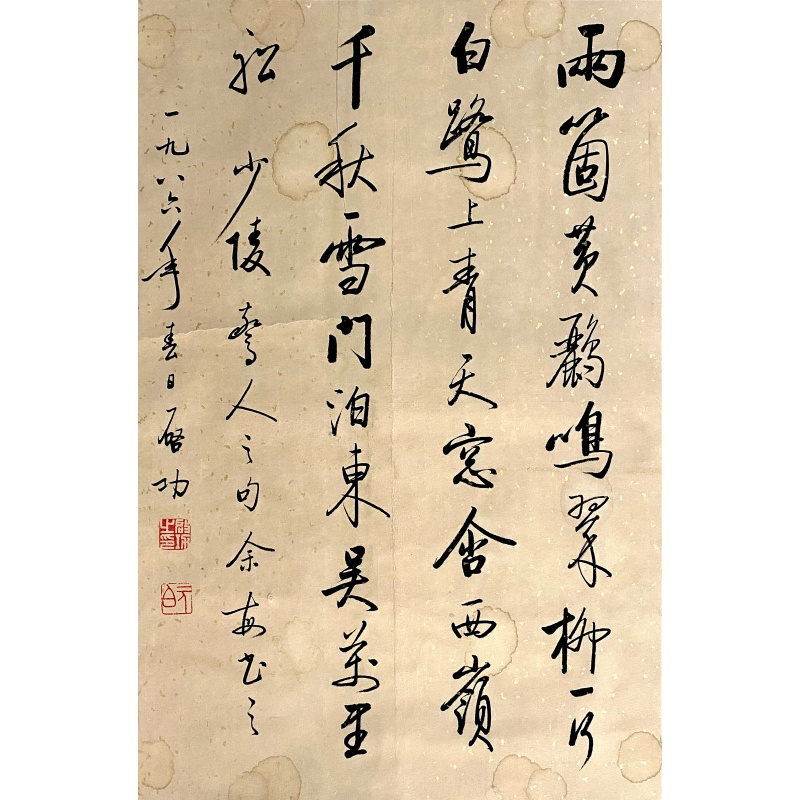 兩箇黃鸝鳴翠柳一行
白鷺上青天窓含西嶺
千秋雪門泊東吳萬里
船 少陵驚人之句余每書之
一九八六年春日啓功